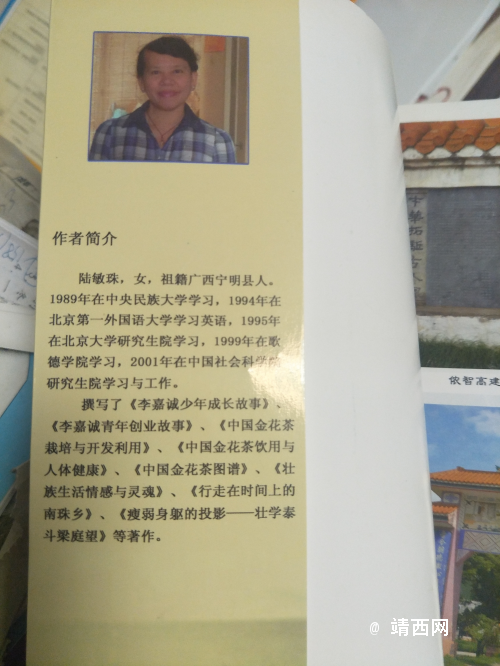 作者简介
陆敏珠，女，祖籍广西宁明县人。
1989年在中央民族大学学习，1994年在
北京第一外国语大学学习英语，1995年
在北京大学研究生院学习，1999年在歌
德学院学习，2001年在中国社会科学院
研究生院学习与工作。
撰写了《李嘉诚少年成长故事》、
《李嘉诚青年创业故事》、《中国金花茶
栽培与开发利用》、《中国金花茶饮用与
人体健康》、《中国金花茶图谱》、《壮
族生活情感与灵魂》、《行走在时间上的
南珠乡》、《瘦弱身躯的投影——壮学泰
斗梁庭望》等著作。
侬智高建
@ 靖西网